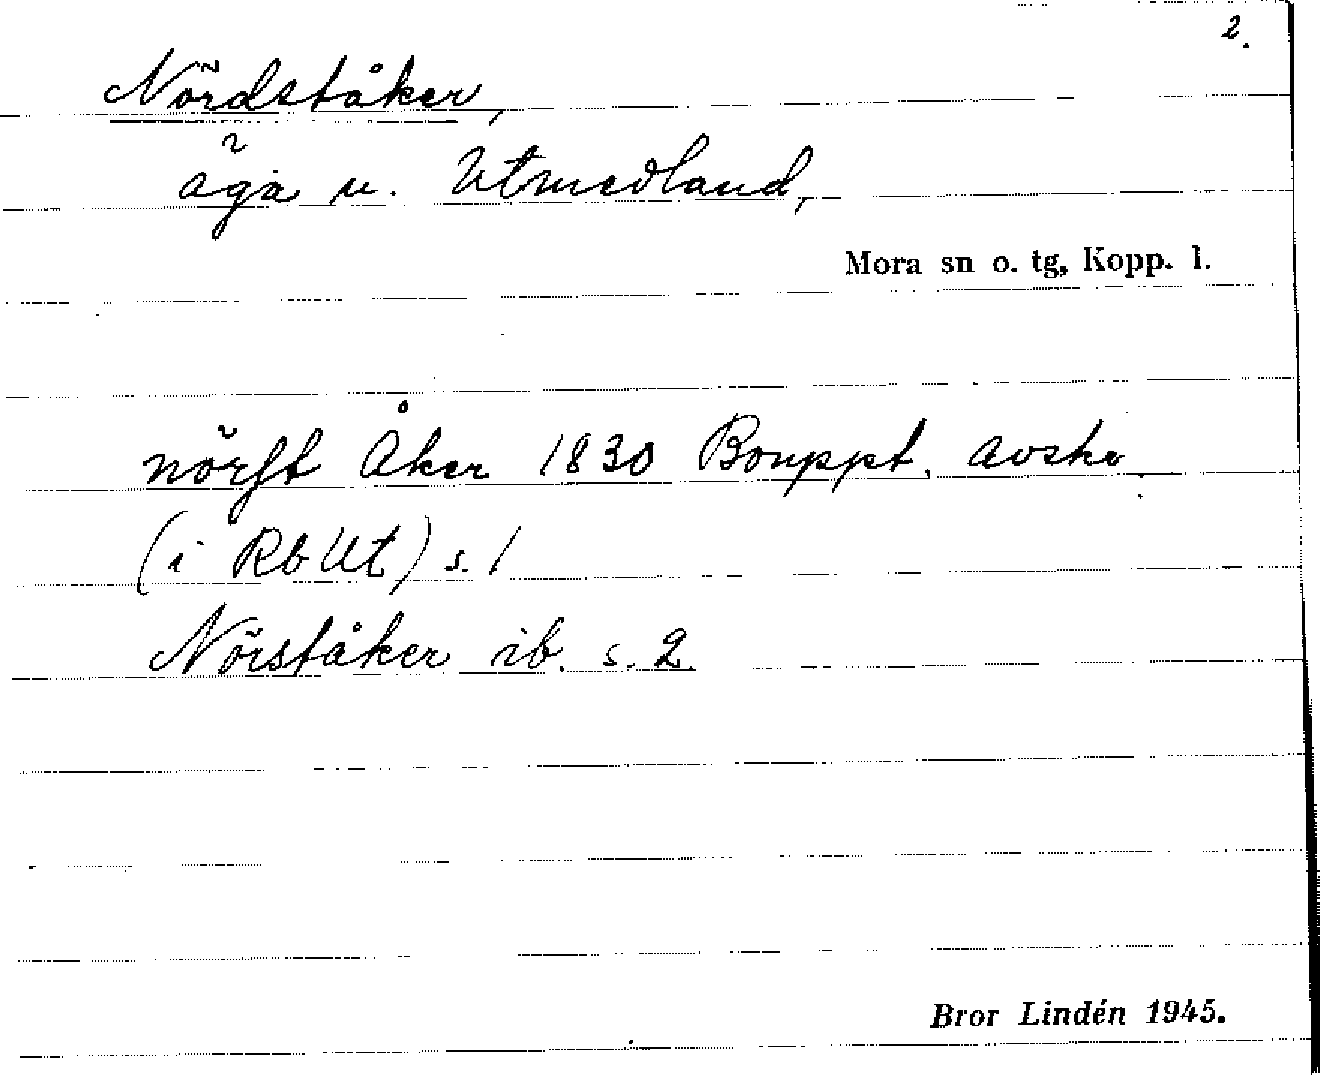 2.
Nördståker,
äga u. Utmedland,
Mora sn o. tg, Kopp. l.
nörst Åker 1830 Bouppt. avskr.
(i Rb Ut) s. 1
Nörståker ib. s. 2.
Bror Lindén 1945.